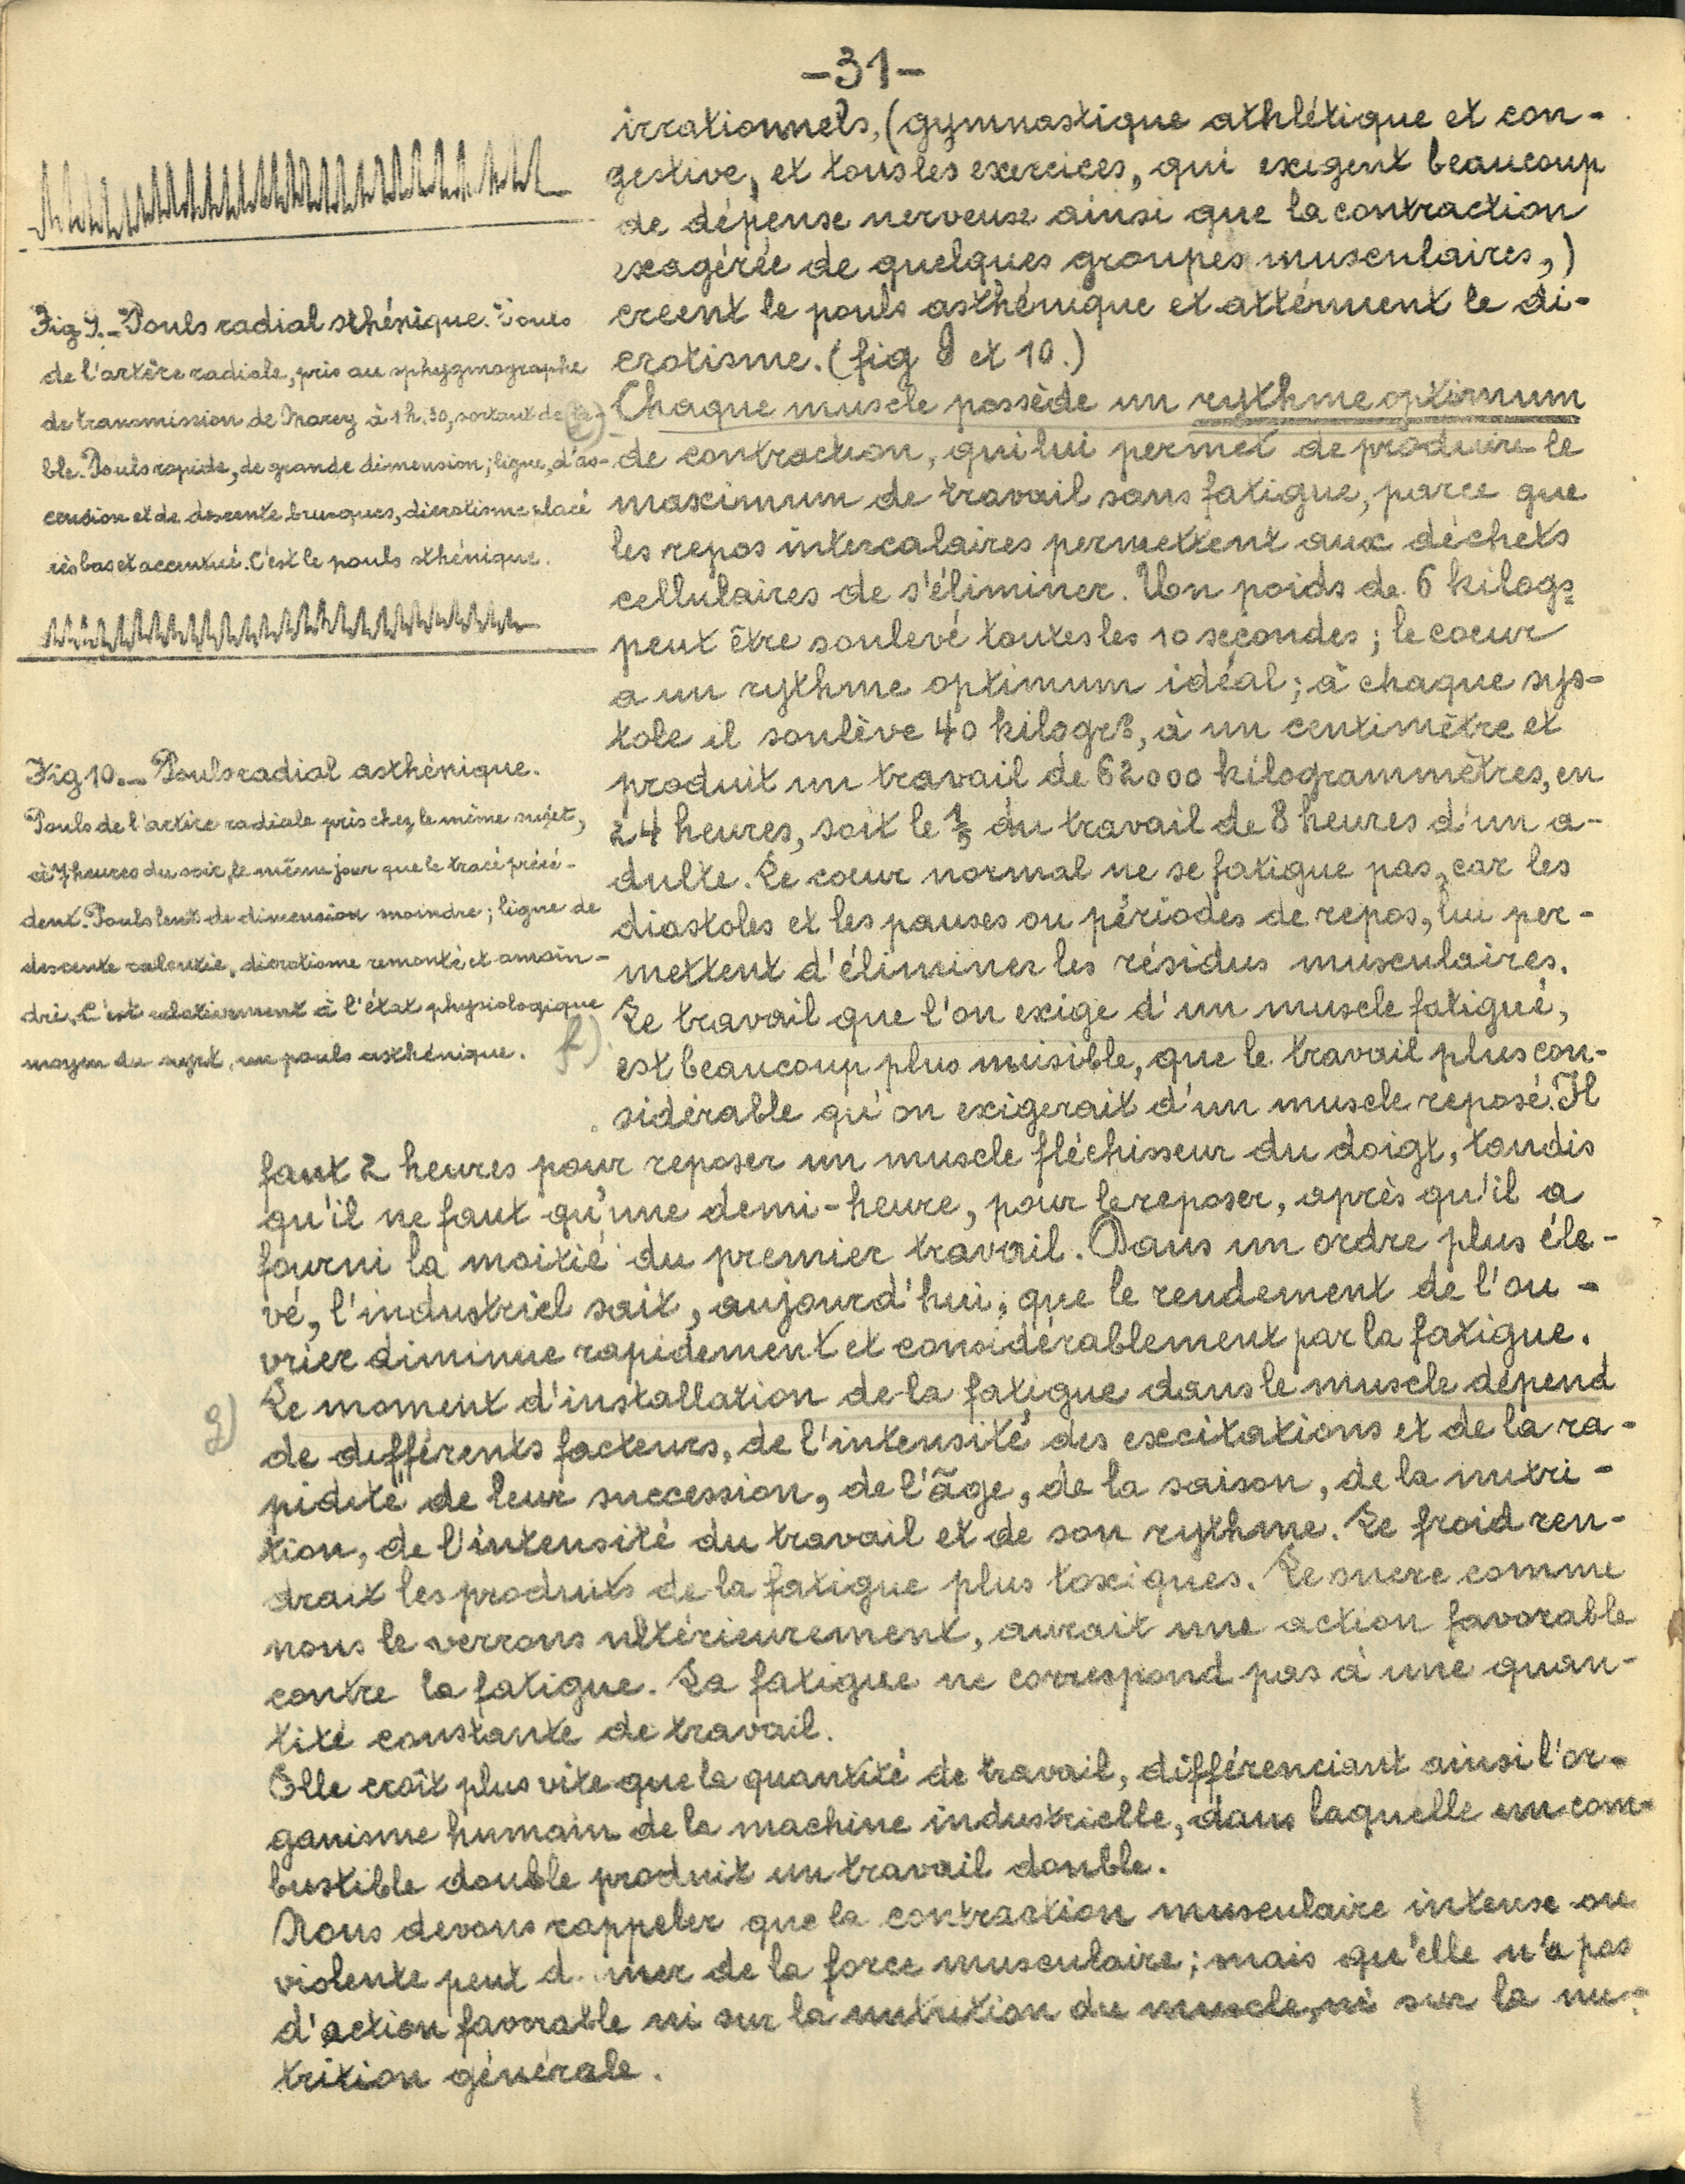 -31-
irrationnels, (gymnastique athlétique et con-
gestive, et tous les exercices, qui exigent beaucoup
de dépense nerveuse ainsi que la contraction
exagérée de quelques groupes musculaires,)
créent le pouls asthénique et atténuent le di-
crotisme. (fig 9 et 10.)
e) Chaque muscle possède un rythme optimum
de contraction, qui lui permet de produire le
maximum de travail sans fatigue, parce que
les repos intercalaires permettent aux déchets
cellulaires de s'éliminer. Un poids de 6 kilogs
peut être soulevé toutes les 10 secondes; le coeur
a un rythme optimum idéal; à chaque sys-
tole il soulève 40 kilogrs, à un centimètre et
produit un travail de 62000 kilogrammètres, en
24 heures, soit le 1/5 du travail de 8 heures d'un a-
dulte. Le coeur normal ne se fatigue pas, car les
diastoles et les pauses ou périodes de repos, lui per-
mettent d'éliminer les résidus musculaires.
f) Le travail que l'on exige d'un muscle fatigué,
est beaucoup plus nuisible, que le travail plus con-
sidérable qu'on exigerait d'un muscle reposé. Il
Fig 9. - Pouls radial sthénique. Pouls
de l'artère radiale, pris au sphygmographe
de transmission de Marey à 1 h. 30, sortant de ta-
ble. Pouls rapide, de grande dimension; ligne, d'as-
cension et de descente brusques, dicrotisme placé
rès bas et accentué. C'est le pouls sthénique.
Fig 10. - Pouls radial asthénique.
Pouls de l'artère radiale pris chez le même sujet,
à 7 heures du soir, le même jour que le tracé précé-
dent. Pouls lent de dimension moindre; ligne de
descente ralentie, dicrotisme remonté et amoin-
dri. C'est relativement à l'état physiologique
moyen du sujet, un pouls asthénique.
faut 2 heures pour reposer un muscle fléchisseur du doigt, tandis
qu'il ne faut qu'une demi-heure, pour le reposer, après qu'il a
fourni la moitié du premier travail. Dans un ordre plus éle-
vé, l'industriel sait, aujourd'hui, que le rendement de l'ou-
vrier diminue rapidement et considérablement par la fatigue.
g) Le moment d'installation de la fatigue dans le muscle dépend
de différents facteurs, de l'intensité des excitations et de la ra-
pidité de leur succession, de l'âge, de la saison, de la nutri-
tion, de l'intensité du travail et de son rythme. Le froid ren-
drait les produits de la fatigue plus toxiques. Le sucre comme
nous le verrons ultérieurement, aurait une action favorable
contre la fatigue. La fatigue ne correspond pas à une quan-
tité constante de travail.
Elle croît plus vite que la quantité de travail, différenciant ainsi l'or-
ganisme humain de la machine industrielle, dans laquelle un com-
bustible double produit un travail double.
Nous devons rappeler que la contraction musculaire intense ou
violente peut d nner de la force musculaire; mais qu'elle n'a pas
d'action favorable ni sur la nutrition du muscle, ni sur la nu-
trition générale.